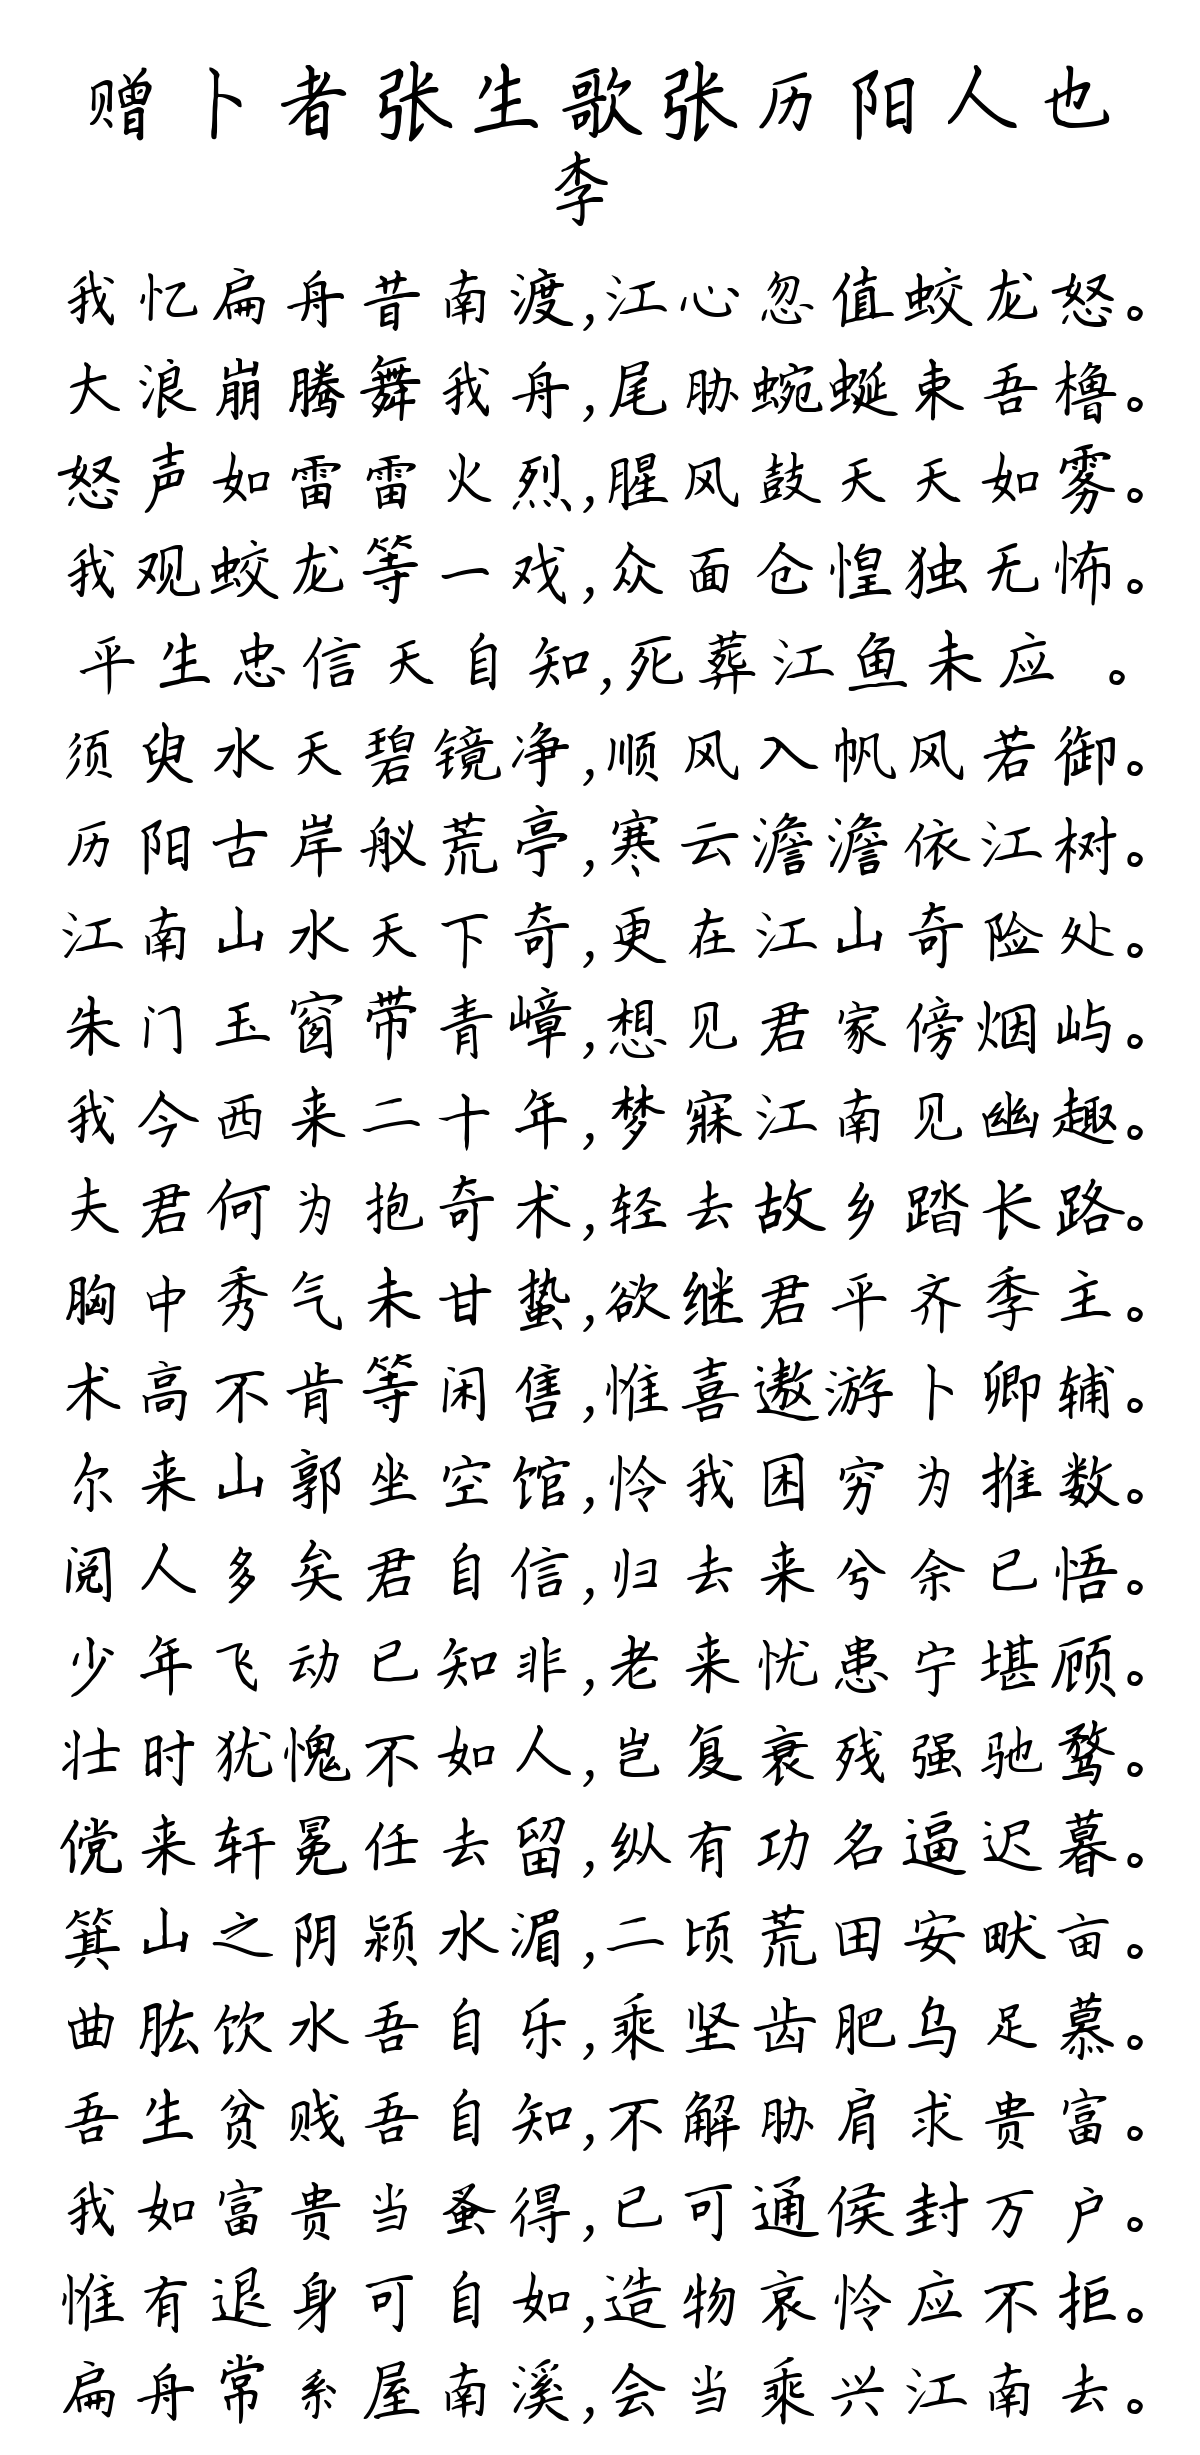 赠卜者张生歌张历阳人也
李
我忆扁舟昔南渡,江心忽值蛟龙怒。
大浪崩腾舞我舟,尾胁蜿蜒束吾橹。
怒声如雷雷火烈,腥风鼓天天如雾。
我观蛟龙等一戏,众面仓惶独无怖。
平生忠信天自知,死葬江鱼未应 。
须臾水天碧镜净,顺风入帆风若御。
历阳古岸舣荒亭,寒云澹澹依江树。
江南山水天下奇,更在江山奇险处。
朱门玉窗带青嶂,想见君家傍烟屿。
我今西来二十年,梦寐江南见幽趣。
夫君何为抱奇术,轻去故乡踏长路。
胸中秀气未甘蛰,欲继君平齐季主。
术高不肯等闲售,惟喜遨游卜卿辅。
尔来山郭坐空馆,怜我困穷为推数。
阅人多矣君自信,归去来兮余已悟。
少年飞动已知非,老来忧患宁堪顾。
壮时犹愧不如人,岂复衰残强驰骛。
傥来轩冕任去留,纵有功名逼迟暮。
箕山之阴颍水湄,二顷荒田安畎亩。
曲肱饮水吾自乐,乘坚齿肥乌足慕。
吾生贫贱吾自知,不解胁肩求贵富。
我如富贵当蚤得,已可通侯封万户。
惟有退身可自如,造物哀怜应不拒。
扁舟常系屋南溪,会当乘兴江南去。